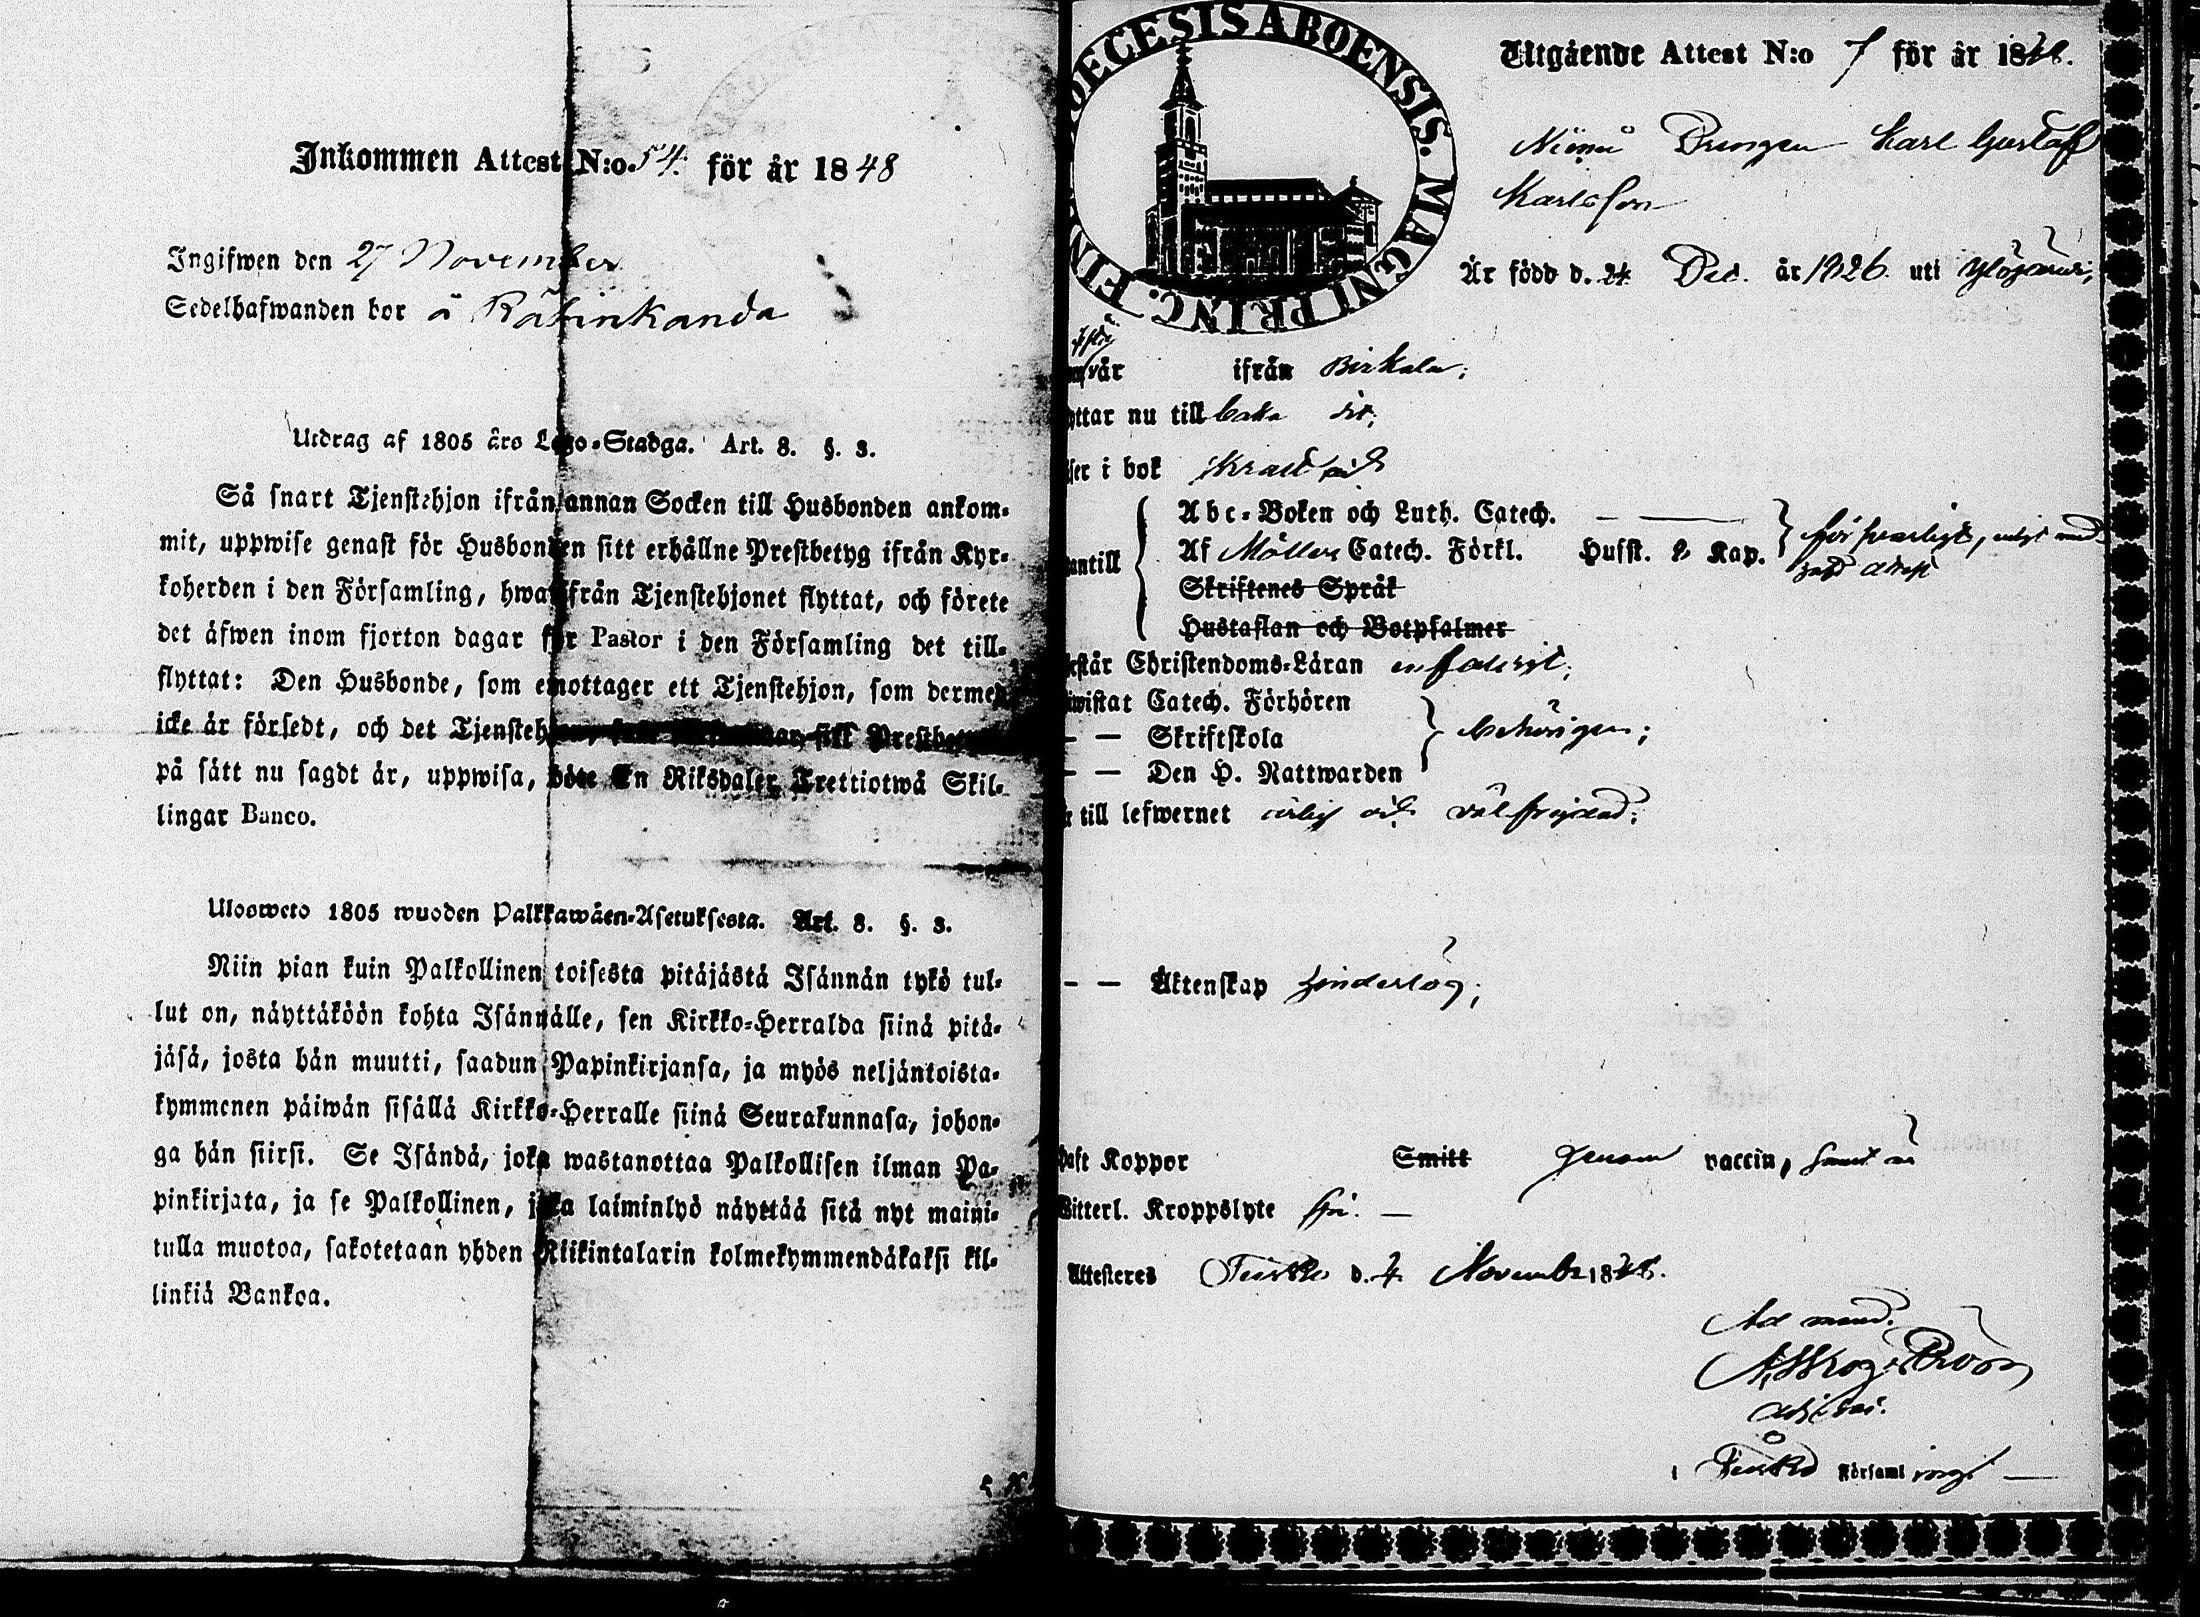 Inkommen Attest N:o. 54. för år 1848
Ingifwen den 27 November
Sedelhafwanden bor å Rätinkanda
Utdrag af 1805 års Lego-Stadga. Art. 8. §. 3.
Så snart Tjenstehjon ifrån annan Socken till Husbonden ankom-
mit, uppwise genast för Husbonden sitt erhållne Prestbetyg ifrån Kyr-
koherden i den Församling, hwarifrån Tjenstehjonet flyttat, och förete
det äfwen inom fjorton dagar för Pastor i den Församling det till-
flyttat: Den Husbonde, som emottager ett Tjenstehjon, som dermed
icke är försedt, och det Tjensteh sitt Prestbe
på sätt nu sagdt är, uppwisa, böte En Riksdaler Trettiotwå Skil-
lingar Banco.
Ulosweto 1805 wuoden Palkkawäen-Asetuksesta. Art. 8. §. 3.
Niin pian kuin Palkollinen toisesta pitäjästä Isännän tykö tul-
lut on, näyttäköön kohta Isännälle, sen Kirkko-Herralda siinä pitä-
jäsä, josta hän muutti, saadun Papinkirjansa, ja myös neljäntoista-
kymmenen päiwän sisällä Kirkko-Herralle siinä Seurakunnasa, johon-
ga hän siirsi. Se Isändä, joka wastanottaa Palkollisen ilman Pa-
pinkirjata, ja se Palkollinen, joka laiminlyö näyttää sitä nyt maini-
tulla muotoa, sakotetaan yhden Riikintalarin kolmekymmendäkaksi kil-
linkiä Bankoa.
DECESIS ABOENSIS. MAGNI PRINC. FIN
Utgående Attest N:o 7 för år 1848.
Drengen Karl Gustaf
Karlsson
Är född d. 24 Dec. år 1826 uti Ylöjärvi;
ifrån Birkala;
yttar nu till baka dit;
ser i bok
antill
Abc-Boken och Luth. Catech.
Af Möllers Catech. Förkl. Husst. 2 Kap.
försvarligt,
Skriftenes Språk
Hustaflan och Botpsalmer
rstår Christendoms-Läran enfaldigt;
iwistat Catech. Förhören
— — Skriftskola
— — Den H. Nattwarden
behörigen;
r till lefwernet ärlig och välfrejdad;
— — Äktenskap hinderlös;
haft Koppor Smitt genom vaccin, samt är
Witterl. Kroppslyte fri. —
Attesteres Teisko d. 4 November 1848.
Ad mand.
i Teisko Församlings —